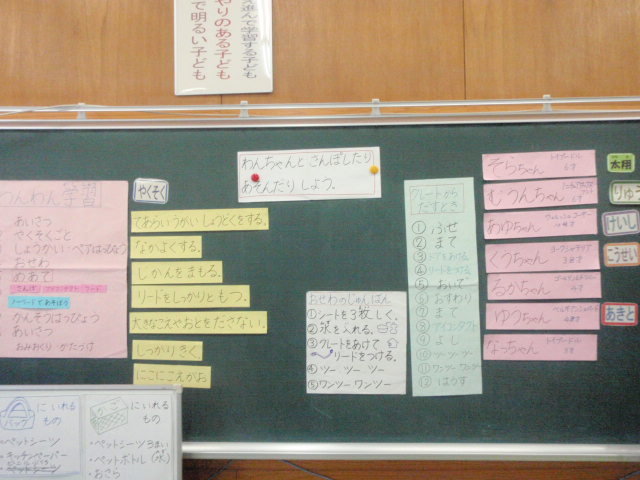 進んで学習する子ども
やりのある子ども
で明るい子ども
わんちゃんと さんぽしたり
あそんだり しよう。
わんわん学習
あいさつ
やくそくごと
しょうかい・ペアはっぴょう
おせわ
めあて
ノーリードであそぼう
かんそうはっぴょう
あいさつ
おみおくり・かたづけ
やくそく
てあらいうがい しょうどくをする。
なかよくする。
じかんをまもる。
リードをしっかりともつ。
大きなこえやおとをださない。
しっかりきく
にこにこえがお
おせわのじゅんばん
①シートを3枚しく。
②水を入れる。
③クレートをあけて
リードをつける。
④ツー ツー ツー
⑤ワンツー ワンツー
クレートから
だすとき
①ふせ
②まて
③ドアをあける
④リードをつける
⑤おいで
⑥おすわり
⑦まて
⑧アイコンタクト
⑨よし
⑩ツー・ツー・ツー
⑪ワンツー ワンツー
⑫はうす
そらちゃん
トイプードル
むうんちゃん
あゆちゃん
ウェルシュコーギー
くうちゃん
ヨークシャテリア
るかちゃん
ゆづちゃん
なっちゃん
トイプードル
太翔
りゅう
けいし
こうせい
あきと
バッグ
にいれる
もの
・ペットシーツ
・キッチンペーパー
かご
にいれる
もの
・ペットシーツ 3まい
・ペットボトル(水)
・おさら